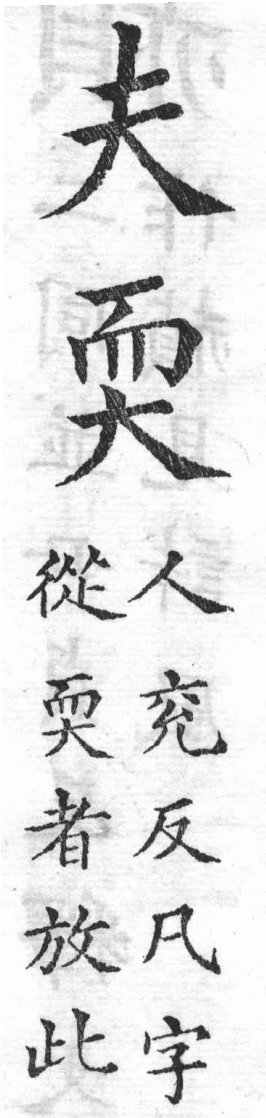 夫耎
人兖反凡字
從耎者放此